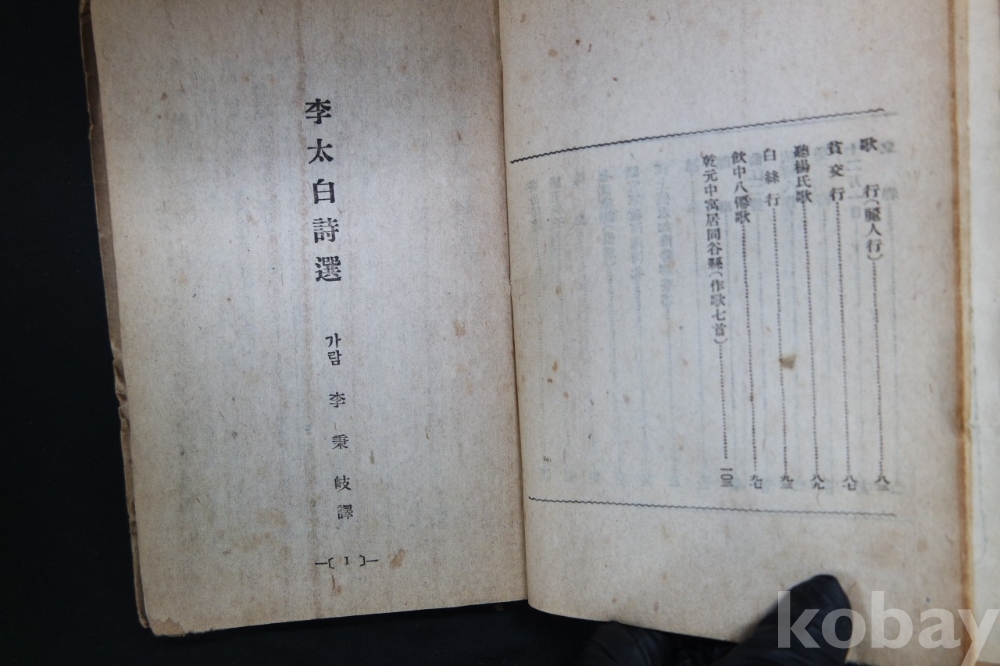 歌 行(麗人行)…………八三
貧交行…………八七
聽楊氏歌…………八九
白絲行…………九三
飮中八僊歌…………九七
乾元中寓居同谷縣(作歌七首)…………一〇三
李太白詩選
가람 李秉岐譯
—〔 I 〕—
kobay